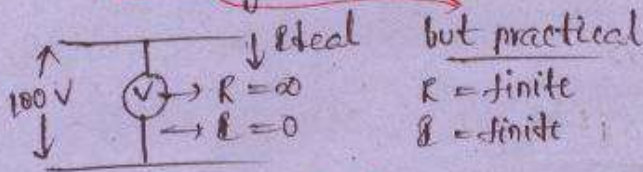 Ideal but practical
100 V V → R = ∞ R = finite
→ I = 0 I = finite